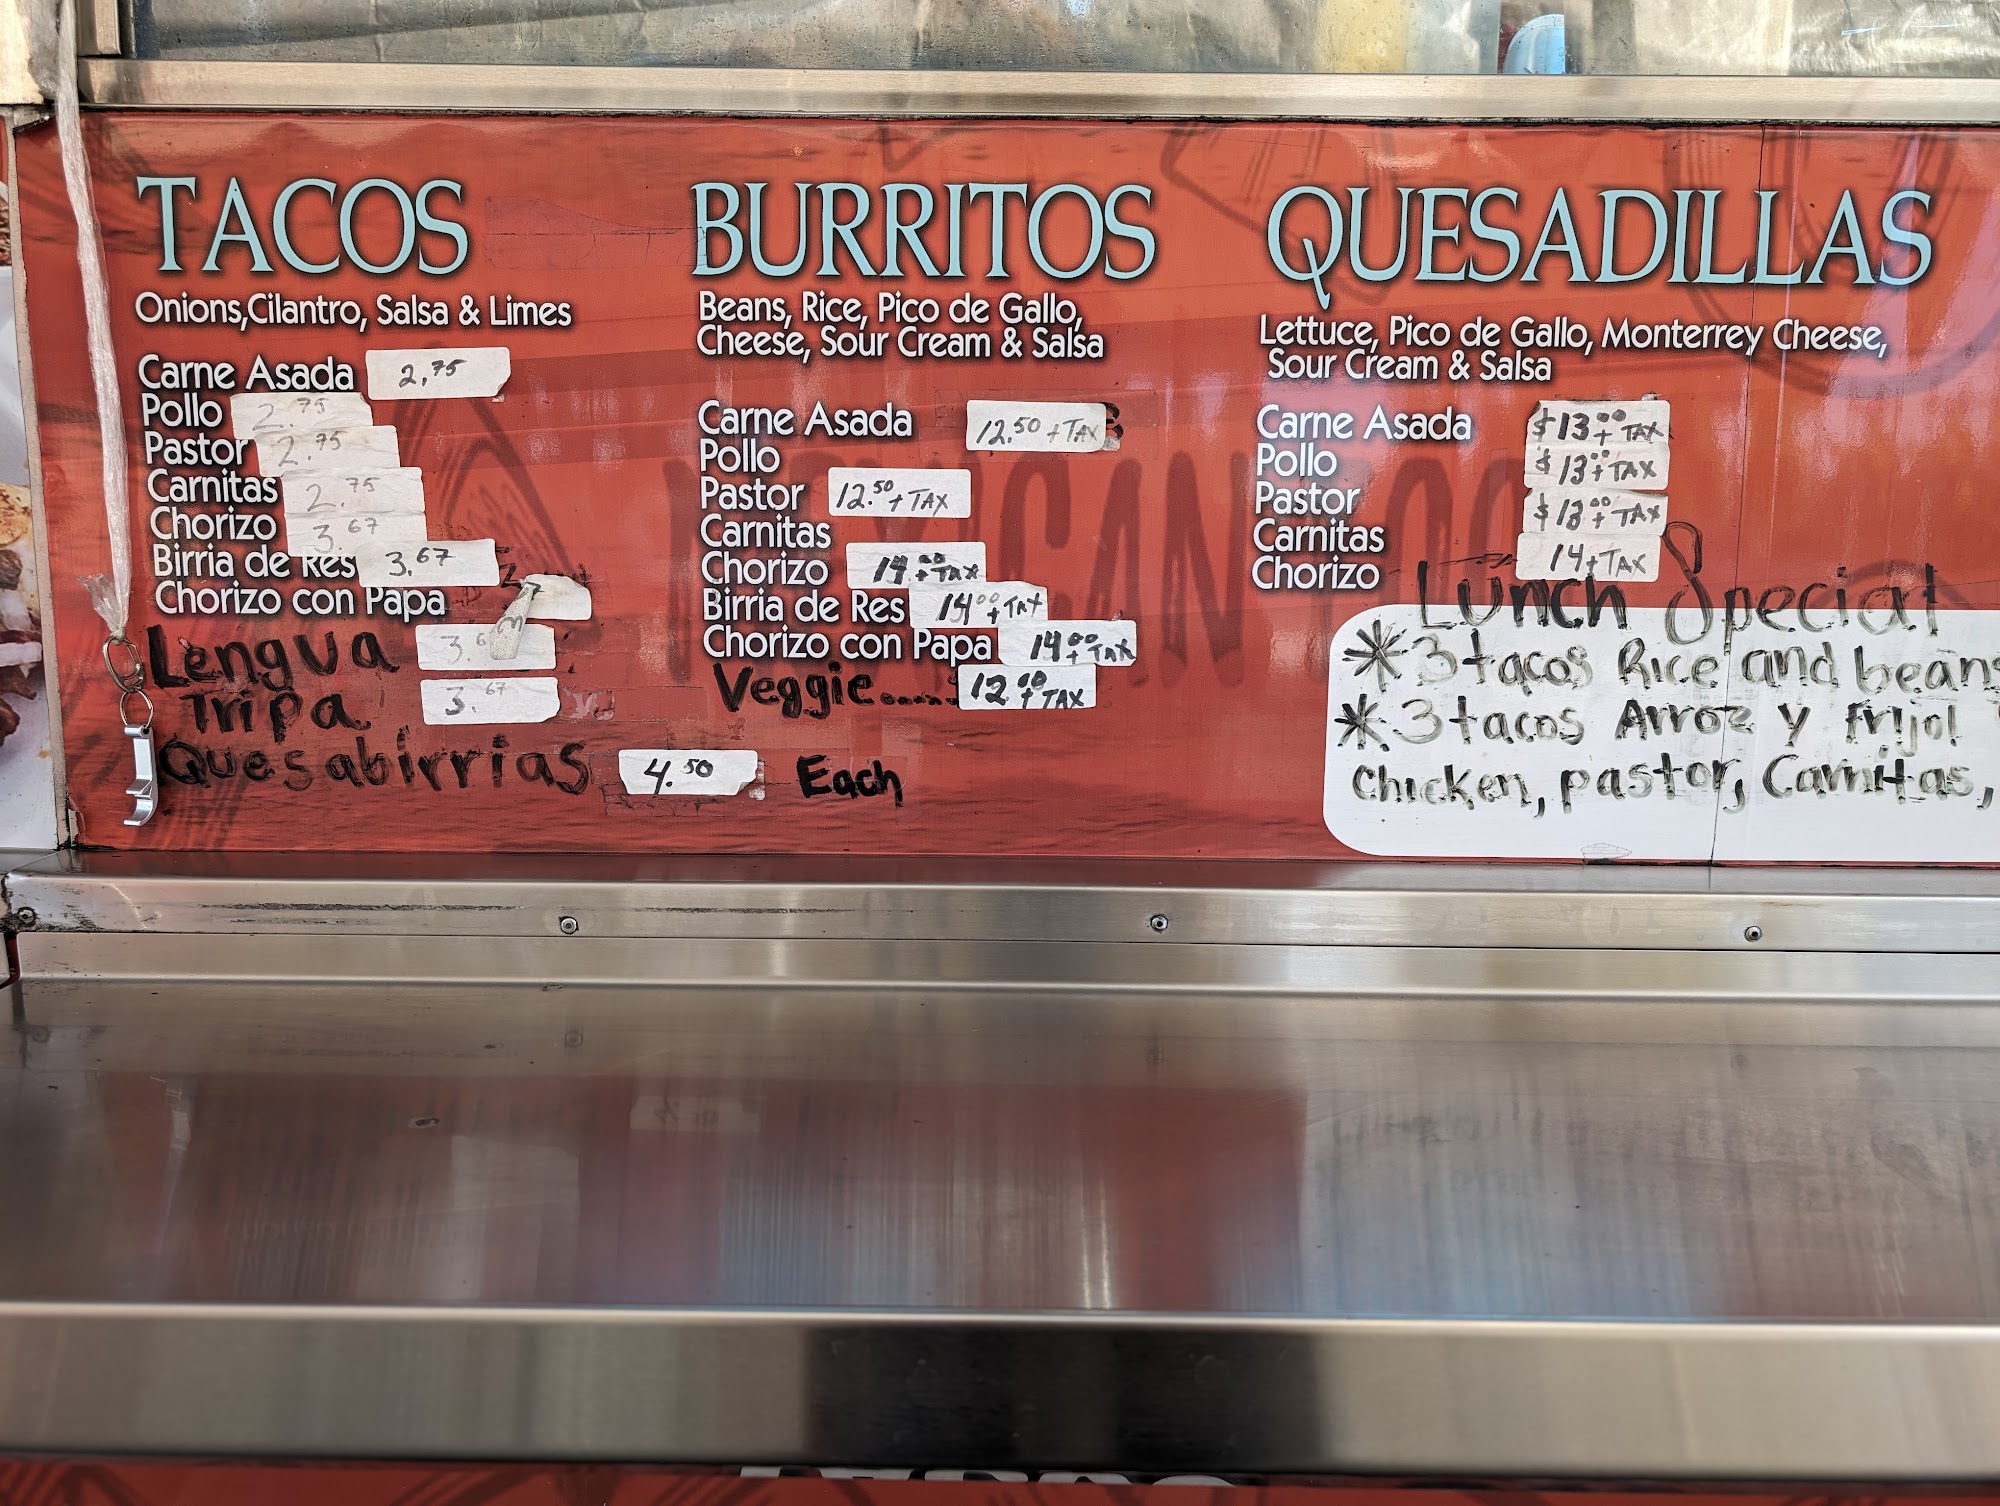 TACOS
Onions,Cilantro, Salsa & Limes
Carne Asada 2.75
Pollo 2.75
Pastor 2.75
Carnitas 2.75
Chorizo 3.67
Birria de Res 3.67
Chorizo con Papa
Lengua 3.6
Tripa 3.67
Quesabirrias 4.50 Each
BURRITOS
Beans, Rice, Pico de Gallo,
Cheese, Sour Cream & Salsa
Carne Asada 12.50 + TAX
Pollo
Pastor 12.50 + TAX
Carnitas
Chorizo 14.00 + TAX
Birria de Res 14.00 + TAX
Chorizo con Papa 14.00 + TAX
Veggie..... 12.00 + TAX
QUESADILLAS
Lettuce, Pico de Gallo, Monterrey Cheese,
Sour Cream & Salsa
Carne Asada $13.00 + TAX
Pollo $13.00 + TAX
Pastor $13.00 + TAX
Carnitas 14 + TAX
Chorizo
Lunch Special
*3 tacos Rice and beans
*3 tacos Arroz y Frijol
Chicken, pastor, Carnitas,